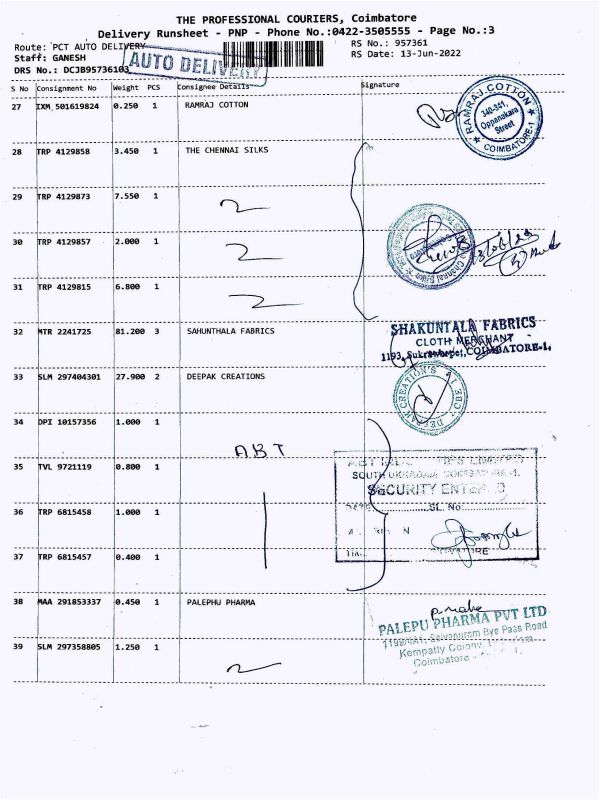 THE PROFESSIONAL COURIERS, Coimbatore
Delivery Runsheet - PNP - Phone No.:0422-3505555 - Page No.:3
Route: PCT AUTO DELIVERY
RS No.: 957361
Staff: GANESH
RS Date: 13-Jun-2022
DRS No.: DCJB95736103
AUTO DELIVERY
S No Consignment No Weight PCS Consignee Details Signature
27 IXM 501619824 0.250 1 RAMRAJ COTTON
RAMRAJ COTTON
340-341,
Oppanakara
Street
COIMBATORE-1
28 TRP 4129858 3.450 1 THE CHENNAI SILKS
29 TRP 4129873 7.550 1
30 TRP 4129857 2.000 1
31 TRP 4129815 6.800 1
32 MTR 2241725 81.200 3 SAHUNTHALA FABRICS
SHAKUNTALA FABRICS
CLOTH MERCHANT
1193, Sukrawarpet, COIMBATORE-1.
33 SLM 297404301 27.900 2 DEEPAK CREATIONS
DEEPAK CREATION'S CBE
34 DPI 10157356 1.000 1
ABT
35 TVL 9721119 0.800 1
ABT LIMITED
SOUTH UKKADAM COIMBATORE-1.
SECURITY
SL. No
36 TRP 6815458 1.000 1
37 TRP 6815457 0.400 1
38 MAA 291853337 0.450 1 PALEPHU PHARMA
PALEPU PHARMA PVT LTD
Bye Pass Road
Kempatty Colony
Coimbatore
39 SLM 297358805 1.250 1